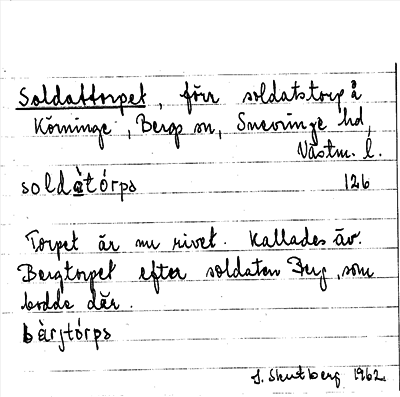 Soldattorpet, förr soldatstorp å
Körninge, Bergs sn, Snevringe hd,
Västm. l.
soldàtórps 126
Torpet är nu rivet. Kallades äv.
Bergtorpet efter soldaten Berg, som
bodde där.
bàrjtórps
J. Skutberg 1962